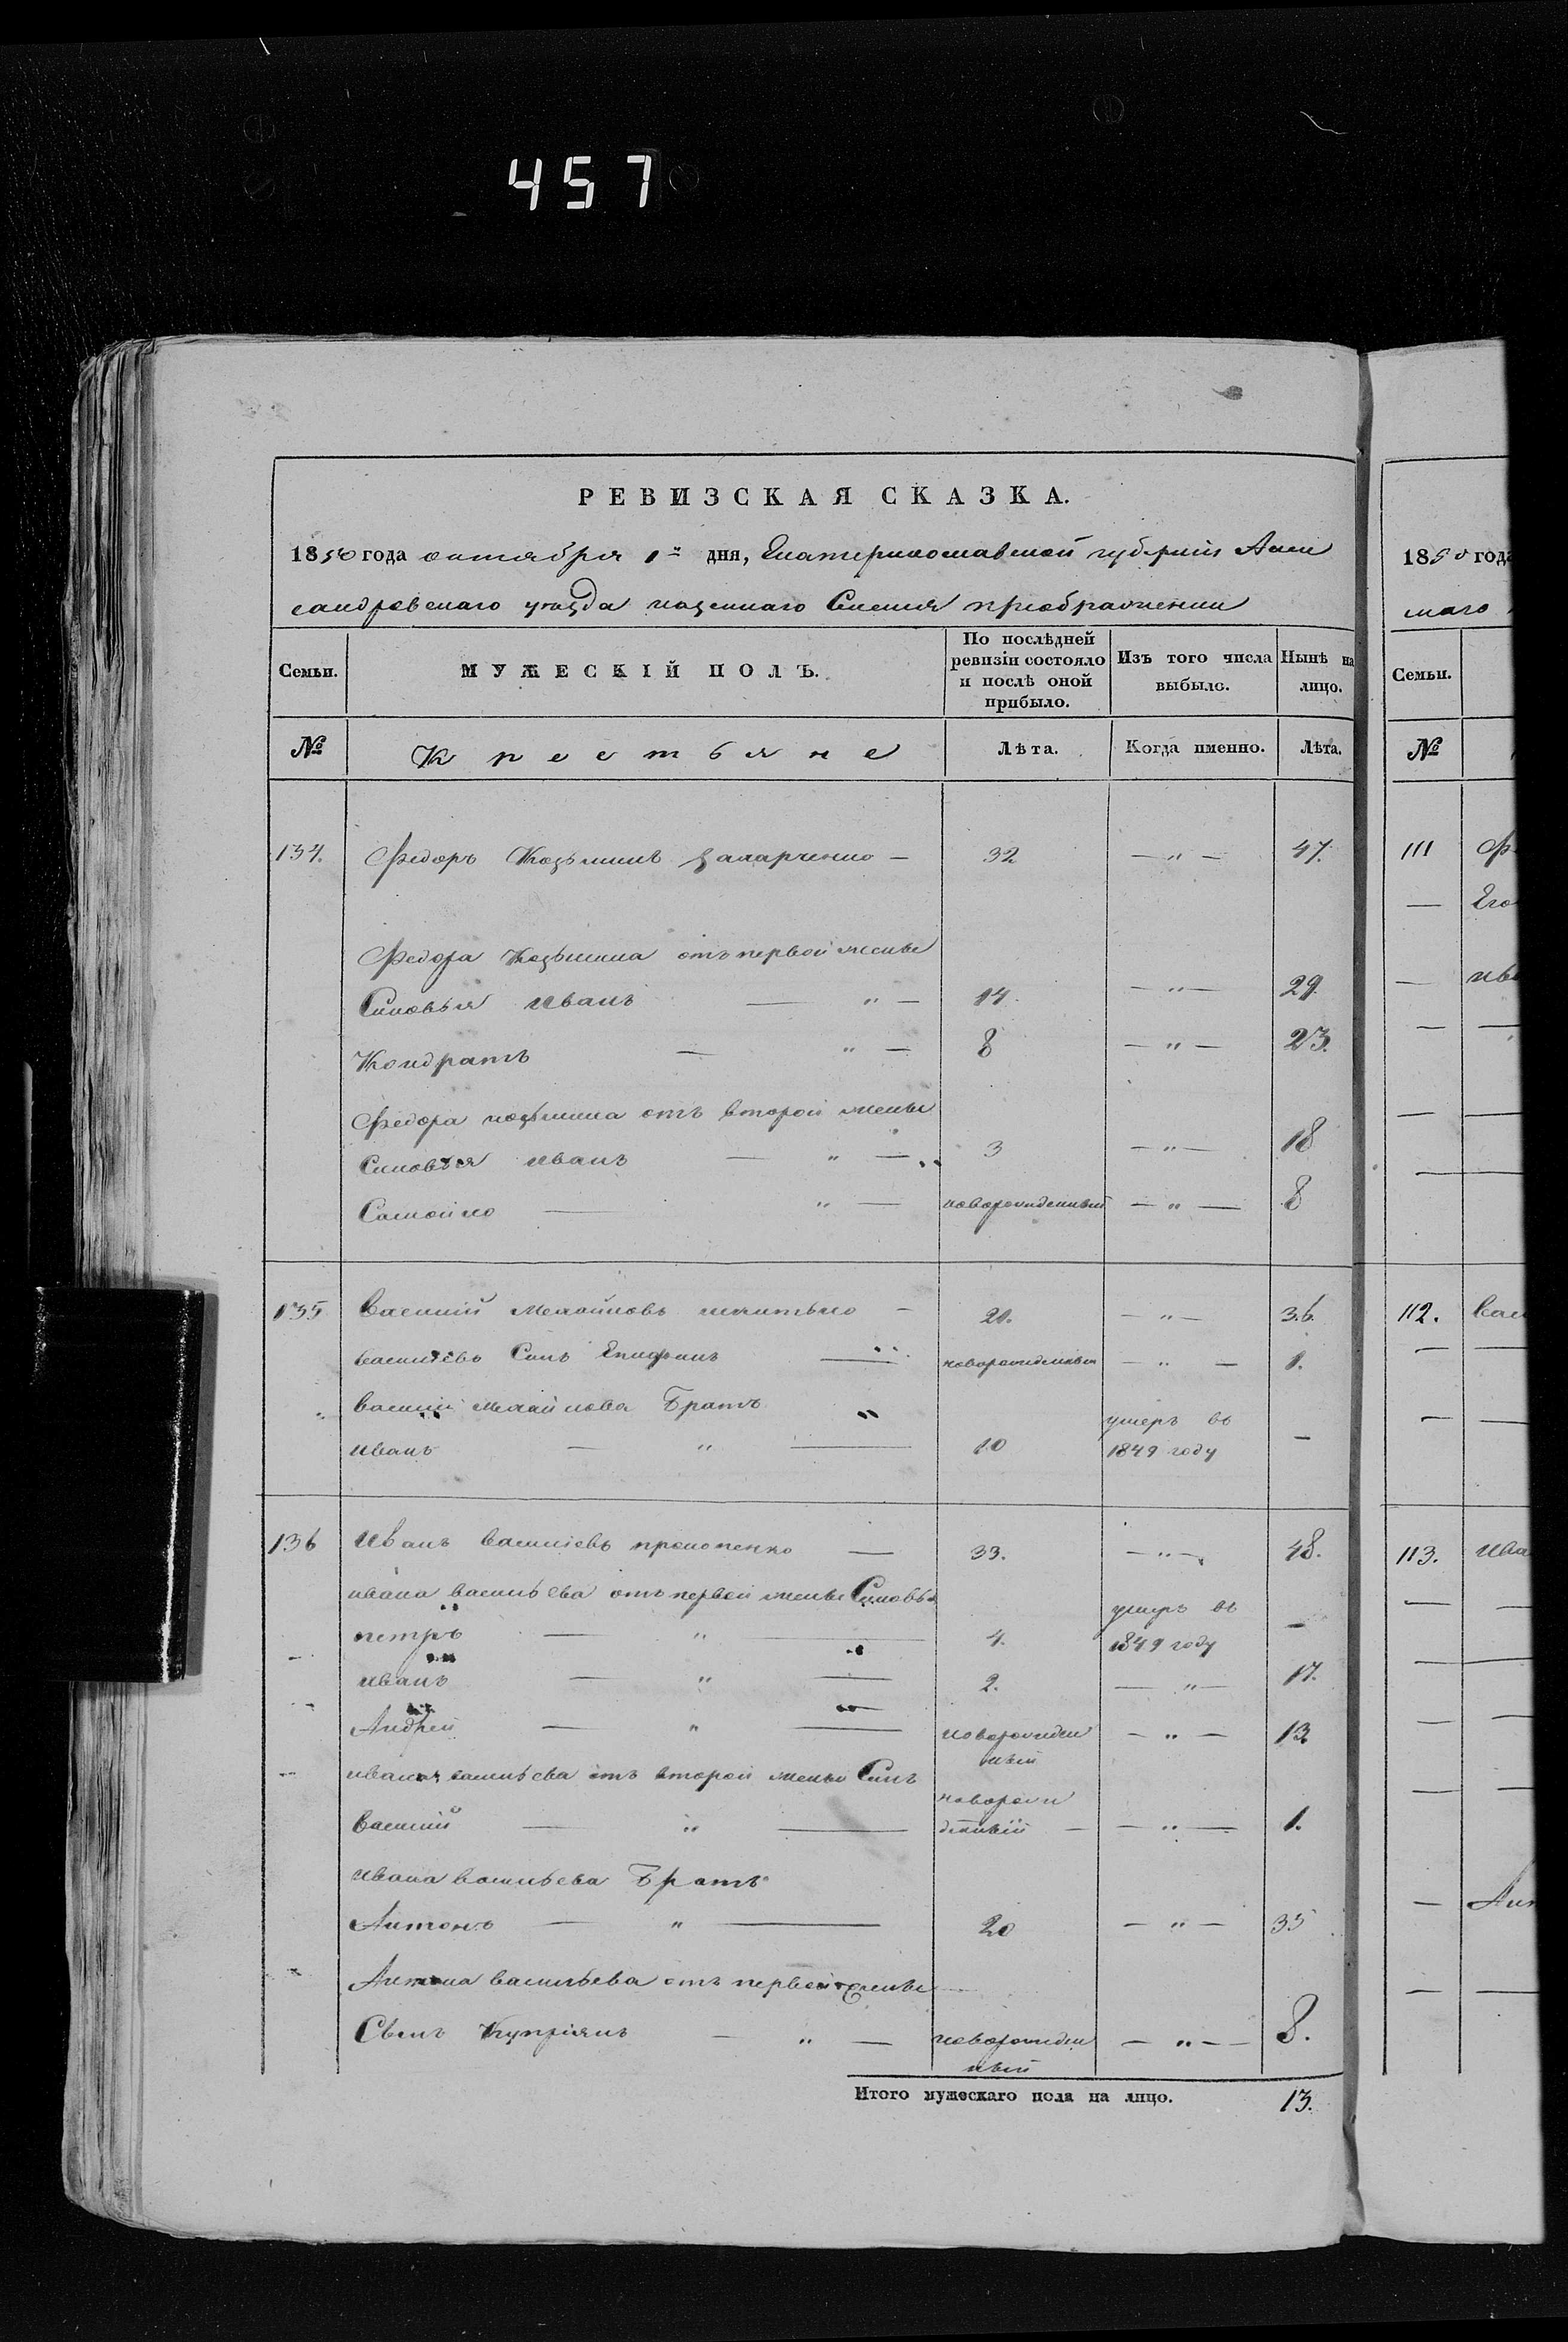 457
РЕВИЗСКАЯ СКАЗКА.
1850 года октября 1го дня, Екатеринославской губернии Алек
сандровскаго уезда казеннаго Селения преображенки
Семьи.
МУЖЕСКІЙ ПОЛЪ.
По послѣдней ревизіи состояло и послѣ оной прибыло.
Изъ того числа выбыло.
Нынѣ на лицо.
№ Крестьяне Лѣта. Когда именно. Лѣта.
134. Федоръ Козьминъ — 32 — " — 47.
Федора Козьмина отъ первой жены
Синовья Иванъ — " — 14. — " — 29.
Кондратъ — " — 8 — " — 23.
Федора козьмина отъ второй жены
Синовья Иванъ — " — 3 — " — 18
Самойло — " — новорожденный — " — 8
135 Василий — 21. — " — 36.
василиевъ Синъ Епифанъ — новорожденный — " — 1.
Братъ "
умеръ въ
иванъ — " — 10 1849 году —
136 Иванъ Василиевъ прокопенко — 33. — " — 48.
ивана васильева отъ первой жены Синовья
умеръ въ
петръ — " — 4. 1849 году —
иванъ — " — 2. — " — 17.
Андрей — " — новорожден — " — 13
ный
ивана васильева отъ второй жены Синъ
новорож
Василий — " — денный — — " — 1.
ивана васильева Братъ
Антонъ — " — 20 — " — 35
Антона васильева отъ первой жены
Сынъ Куприянъ — " — новорожден — " — 8.
ный
Итого мужескаго пола на лицо. 13.
1850 года
Семьи.
№
111
Его
112.
113. ива